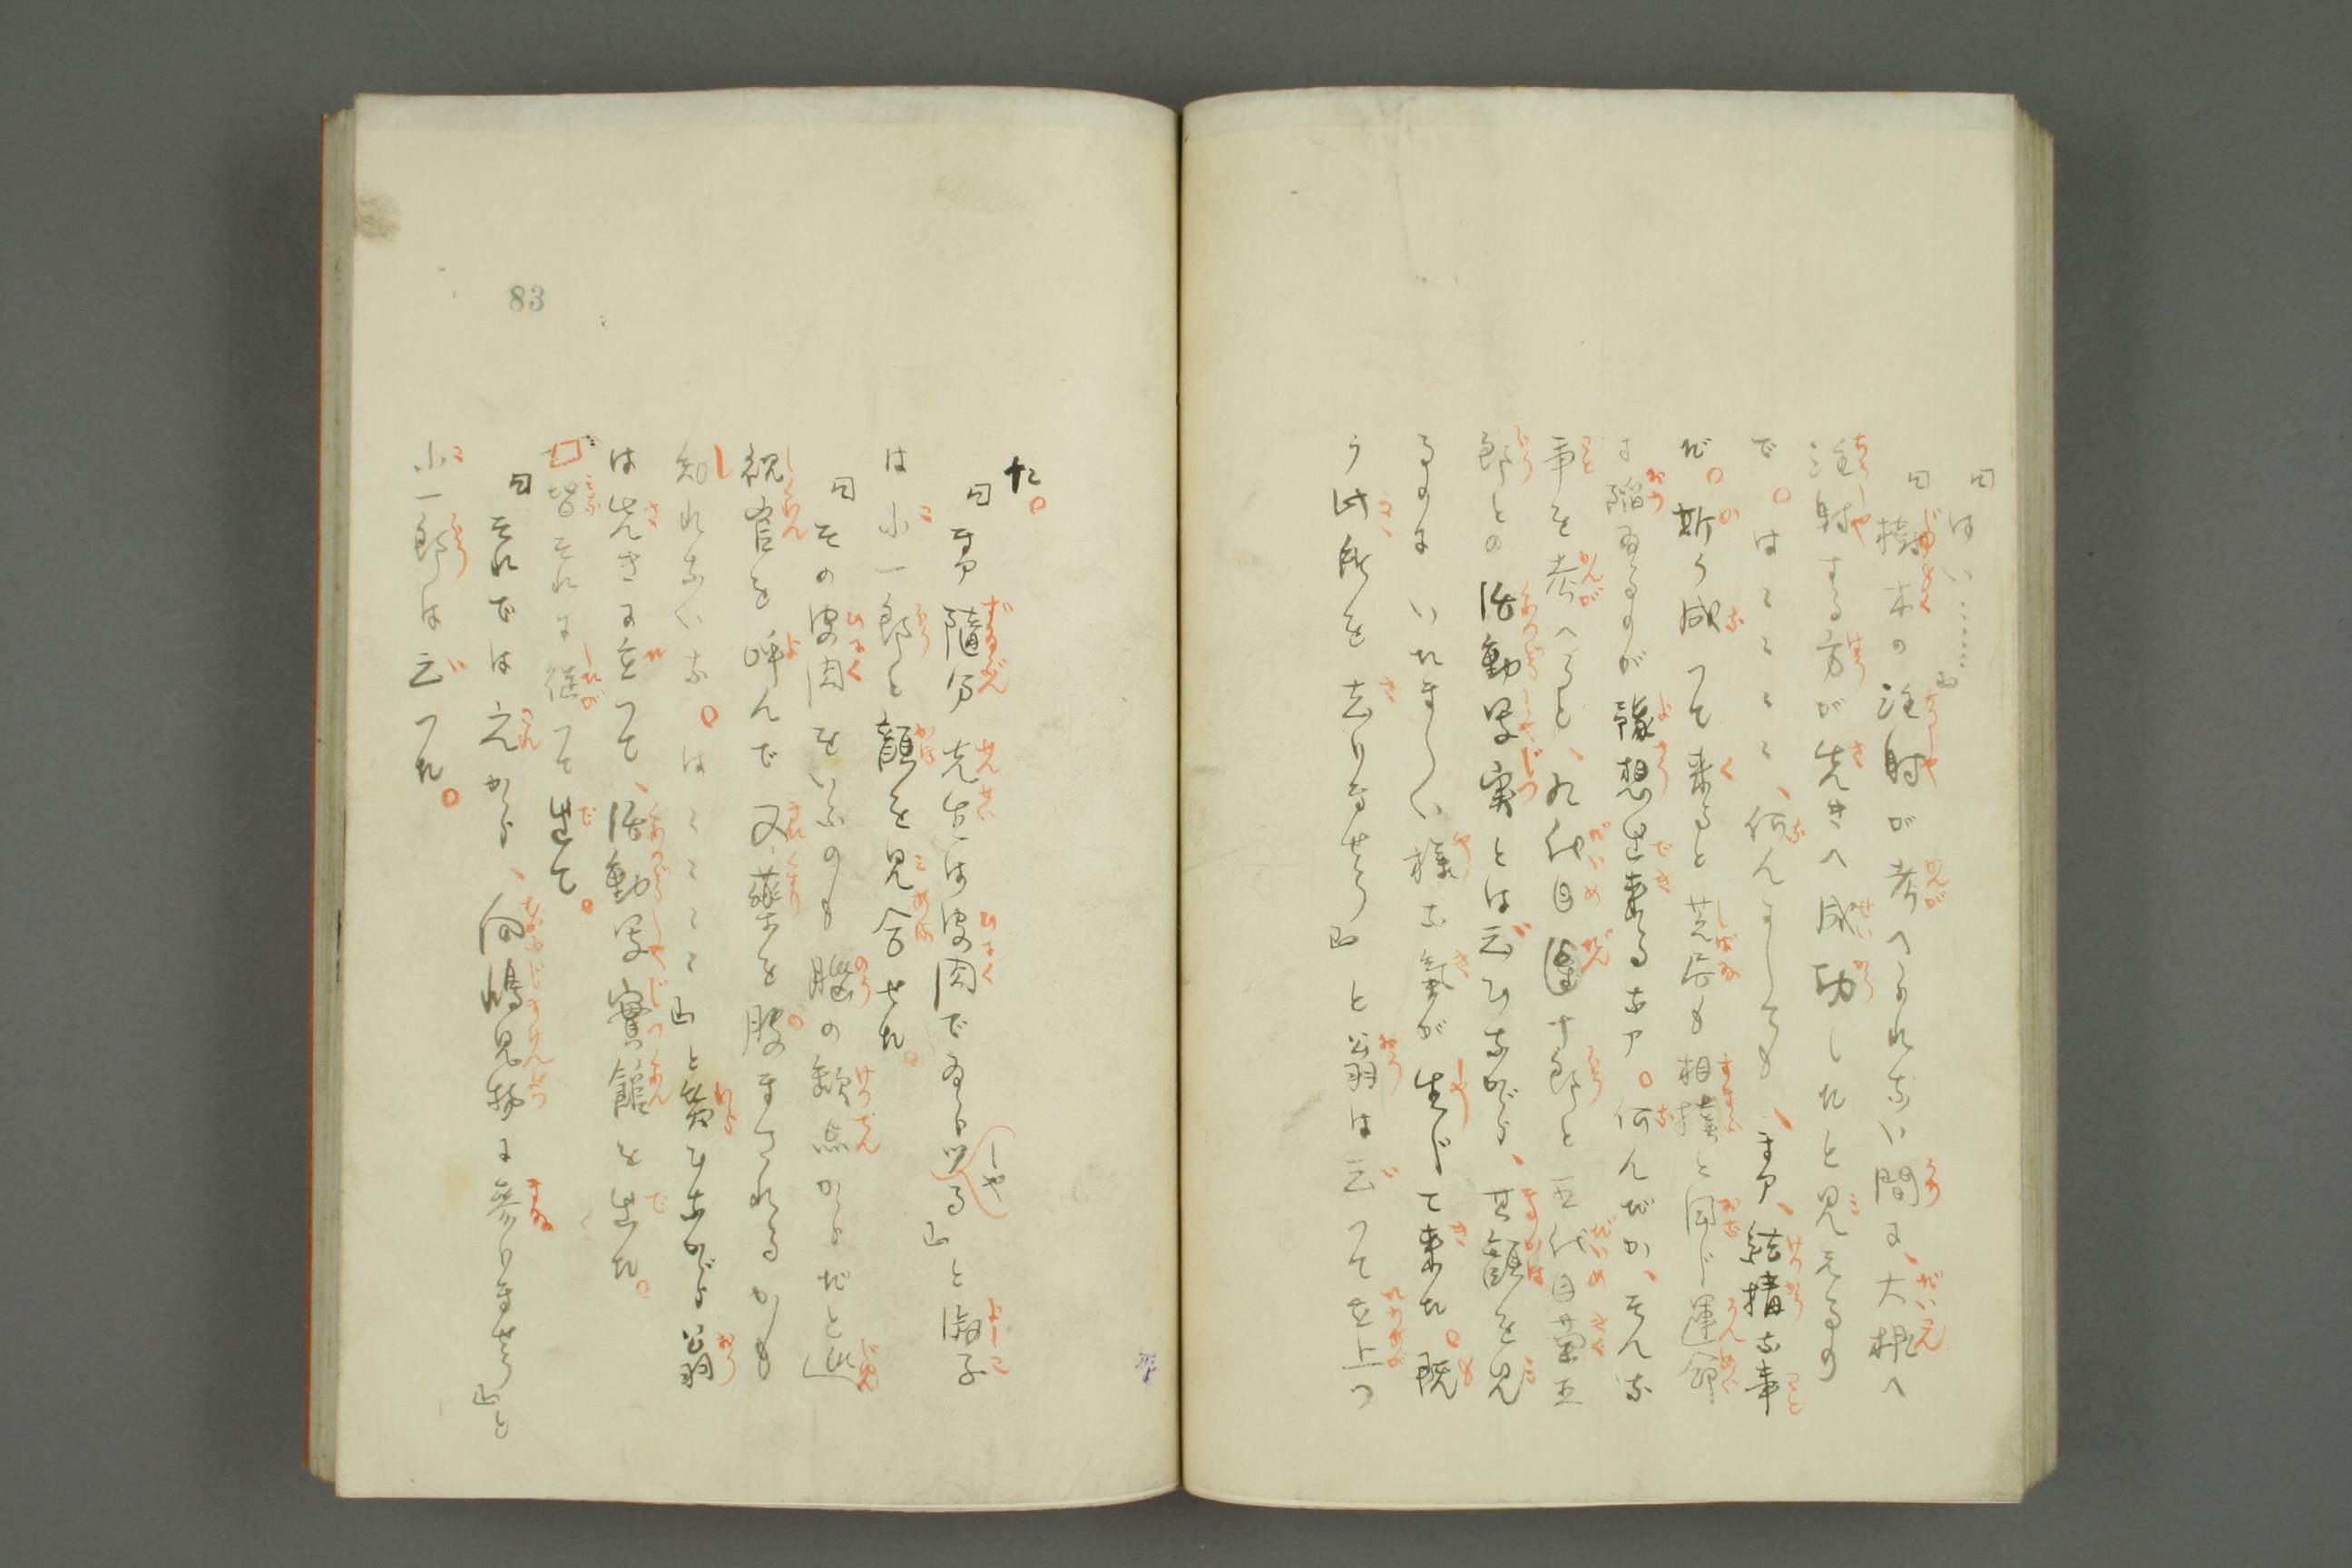 「はい……」
「樹木の注射が考へられない間に、大根へ
注射する方が先きへ成功したと見えるの
で。はゝゝゝゝ、何んにしても、まア、結構な事
だ。斯う成つて来ると芝居も相撲と同じ運命
に陥ゐるのが豫想出来るなア。何んだか、そんな
事を考へると、九代目團十郎と五代目菊五
郎との活動写実とは云ひながら、其顔を見
るのに いたましい様な氣が生じて来た。既
う此所を去りませう」と翁は云つて立上つ
た。
「まア隨分先生は皮肉でゐらツしやる」と淑子
は小一郎と顔を見合せた。
「その皮肉をいふのも腦の缺点からだと巡
視官を呼んで又薬を服まされるかも
知れないな。はゝゝゝゝ」と笑ひながら翁
は先きに立つて、活動写實館を出た。
皆それに従つて出て。
「それでは之から、向嶋見物に参りませう」と
小一郎は云つた。
83